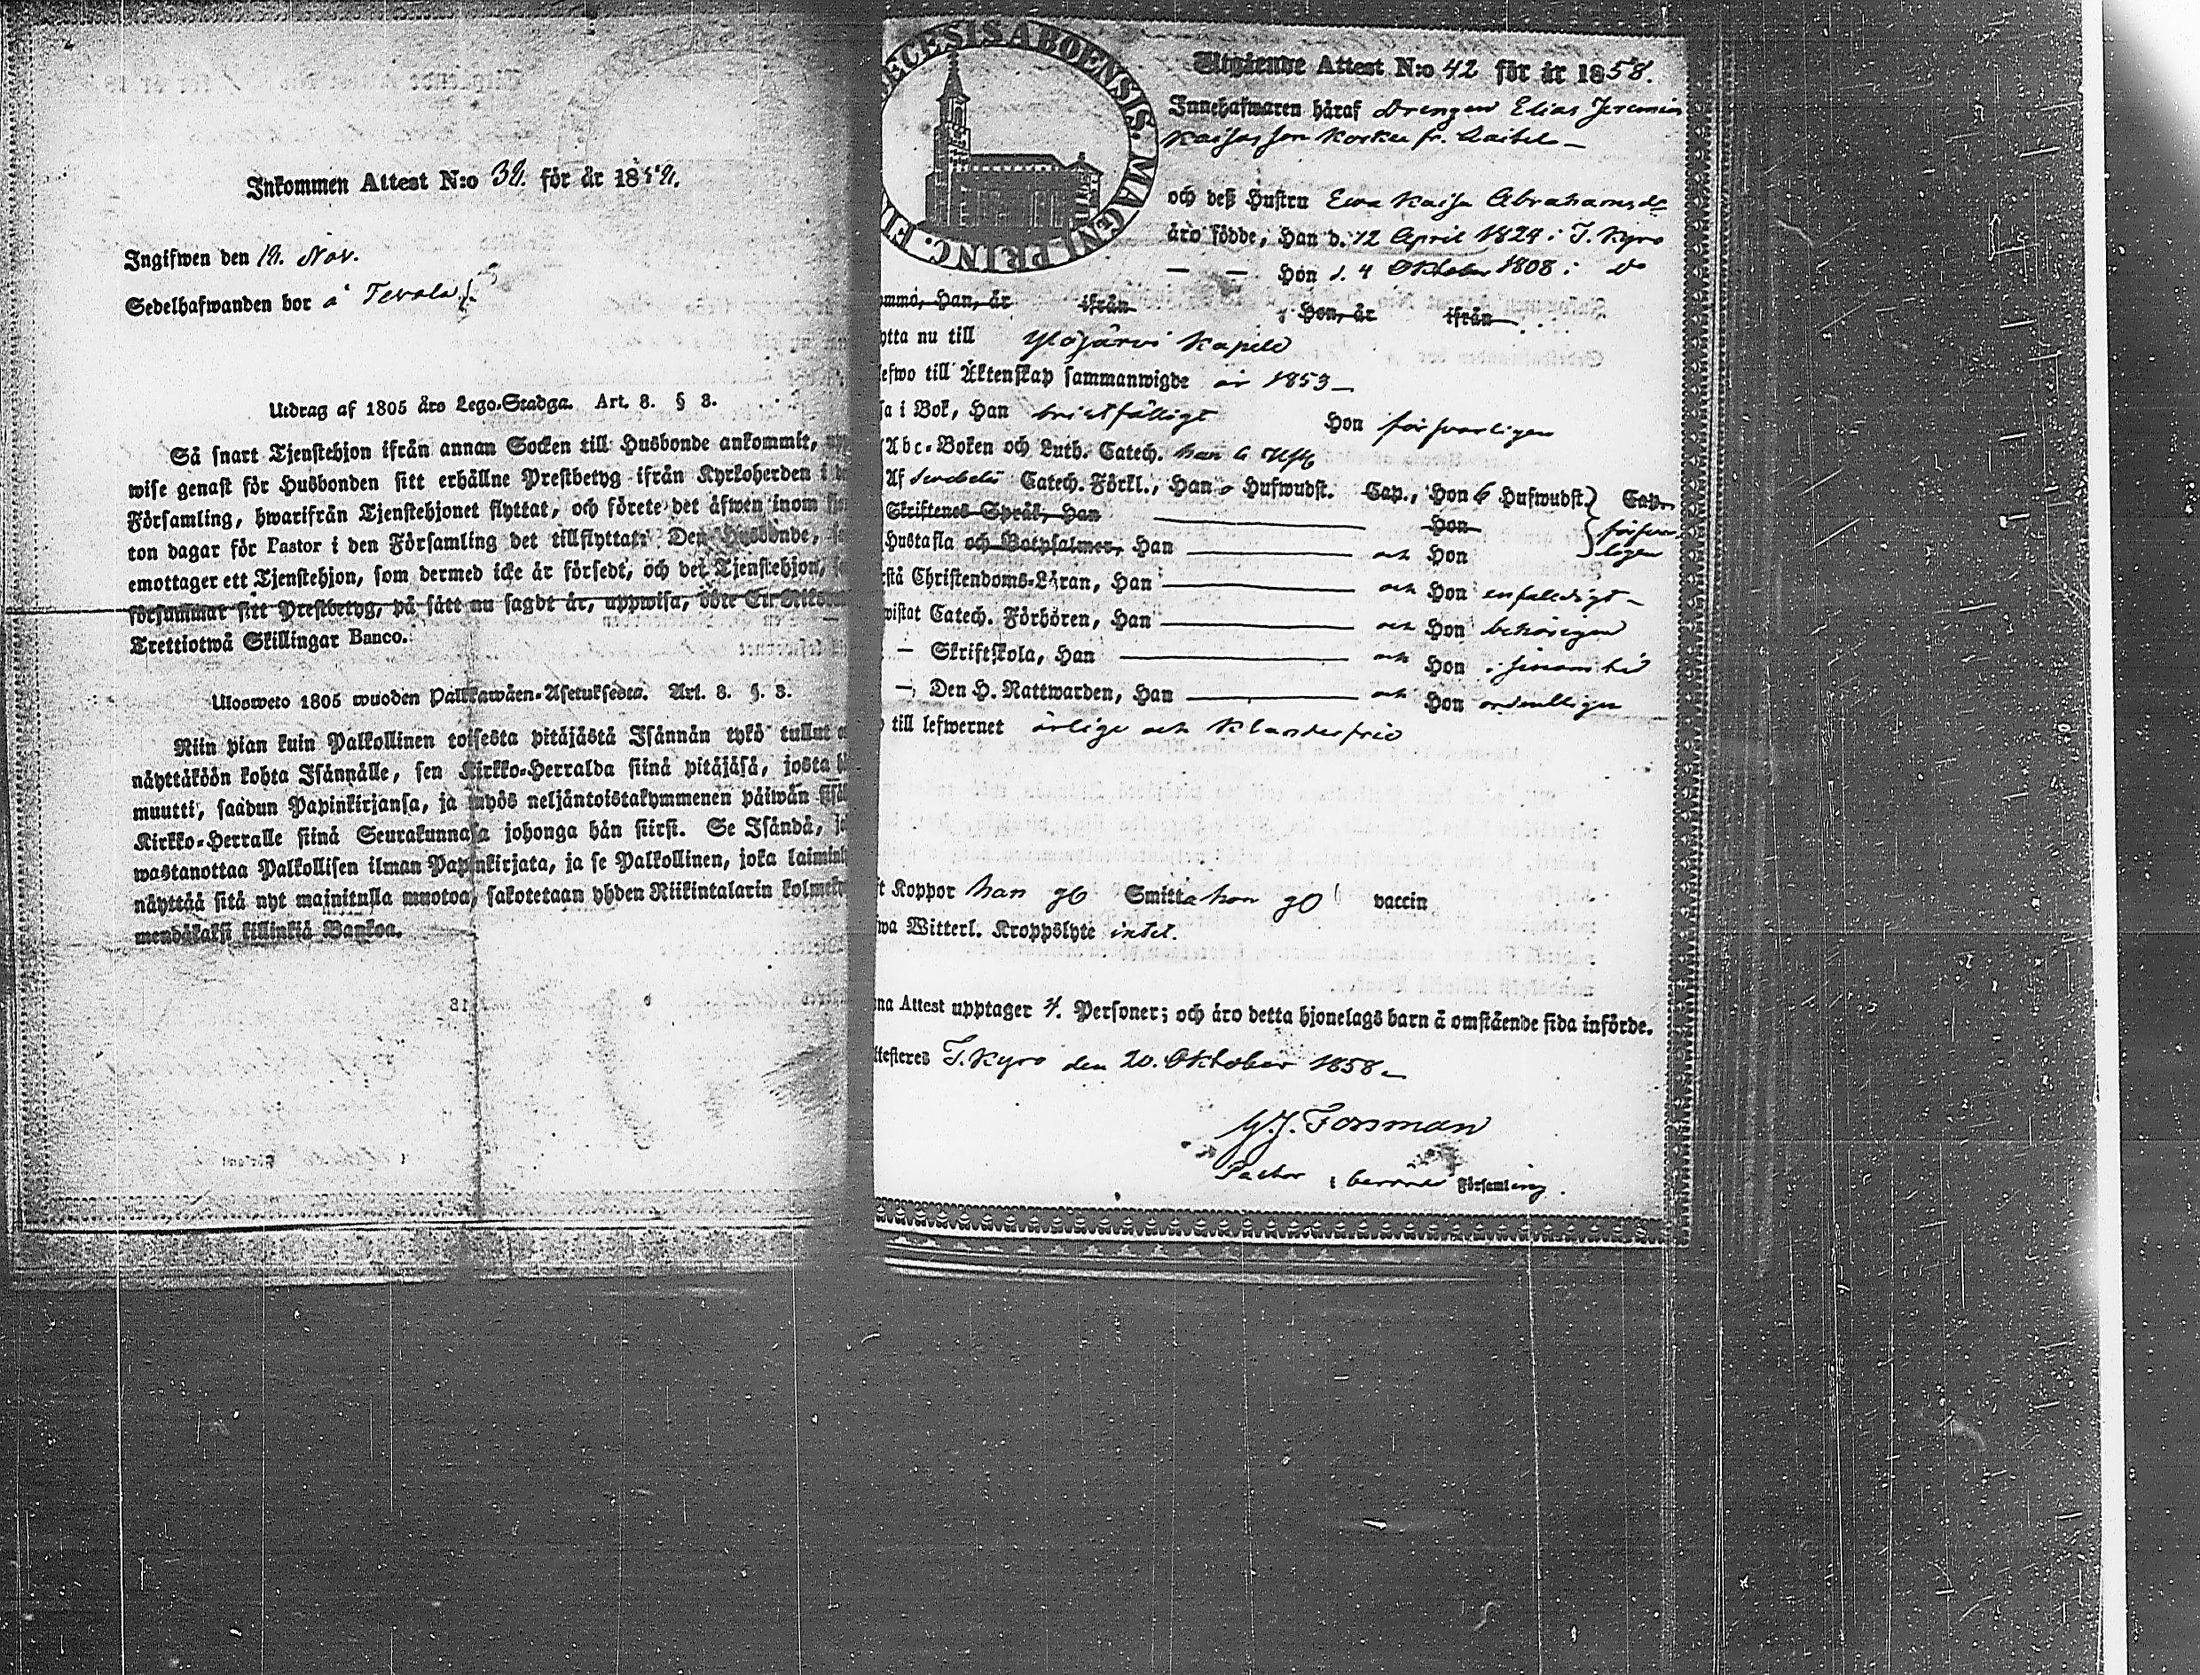 Inkommen Attest N:o 32. för år 18
Ingifwen den 12. Nov.
Sedelhafwanden bor å Tevala
Utdrag af 1805 års Lego-Stadga. Art. 8. § 3.
Så snart Tjenstehjon ifrån annan Socken till Husbonde ankommit,
wise genast för Husbonden sitt erhållne Prestbetyg ifrån Kyrkoherden i
Församling, hwarifrån Tjenstehjonet flyttat, och förete det äfwen inom
ton dagar för Pastor i den Församling det tillflyttat. Den Husbonde,
emottager ett Tjenstehjon, som dermed icke är försedt, och det Tjenstehjon,
försummar sitt Prestbetyg, på sätt nu sagdt är, uppwisa, böte En
Trettiotwå Skillingar Banco.
Ulosweto 1805 wuoden Palkkawäen-Asetuksesta. Art. 8. §. 3.
Niin pian kuin Palkollinen toisesta pitäjästä Isännän tykö tullut
näyttäköön kohta Isännälle, sen Kirkko-Herralda siinä pitäjäsä, josta
muutti, saadun Papinkirjansa, ja myös neljäntoistakymmenen päiwän
Kirkko-Herralle siinä Seurakunnasa johonga hän siirsi. Se Isändä,
wastanottaa Palkollisen ilman Papinkirjata, ja se Palkollinen, joka
näyttää sitä nyt mainitulla muotoa, sakotetaan yhden Riikintalarin
mendäkaksi killinkiä Bankoa.
ECESIS ABOENSIS. MAGNI PRINC. FIN
Utgående Attest N:o 42 för år 1858.
Innehafwaren häraf Drengen Elias Jeremias
Kaisas son Korkee fr.
och deß Hustru Ewa Kaisa Abrahamsdr
äro födde, Han d. 12 April 1824 i I. Kyro
— — Hon d. 4 Oktober 1808 i do
ommo, Han, år ifrån , Hon, år ifrån
ytta nu till Ylöjärvi Kapell
efwo till Äktenskap sammanwigde år 1853 —
sa i Bok, Han bristfälligt Hon försvarligen
Abc-Boken och Luth. Catech. han 6
Af Svebelii Catech. Förkl., Han o Hufwudst. Cap., Hon 6 Hufwudst. Cap.
Skriftenes Språk, Han Hon försvar-
Hustafla och Botpsalmer, Han och Hon ligen
stå Christendoms-Läran, Han och Hon enfaldigt —
wistat Catech. Förhören, Han och Hon behörigen
— Skriftskola, Han och Hon i sinom tid
— Den H. Nattwarden, Han och Hon ordentligen
till lefwernet ärliga och klanderfria
t Koppor han go Smitta hon go vaccin
wa Witterl. Kroppslyte intet.
na Attest upptager 4. Personer; och äro detta hjonelags barn å omstående sida införde.
ttesteres I. Kyro den 20. Oktober 1858 —
Forsman
Pastor i berörde Församling.